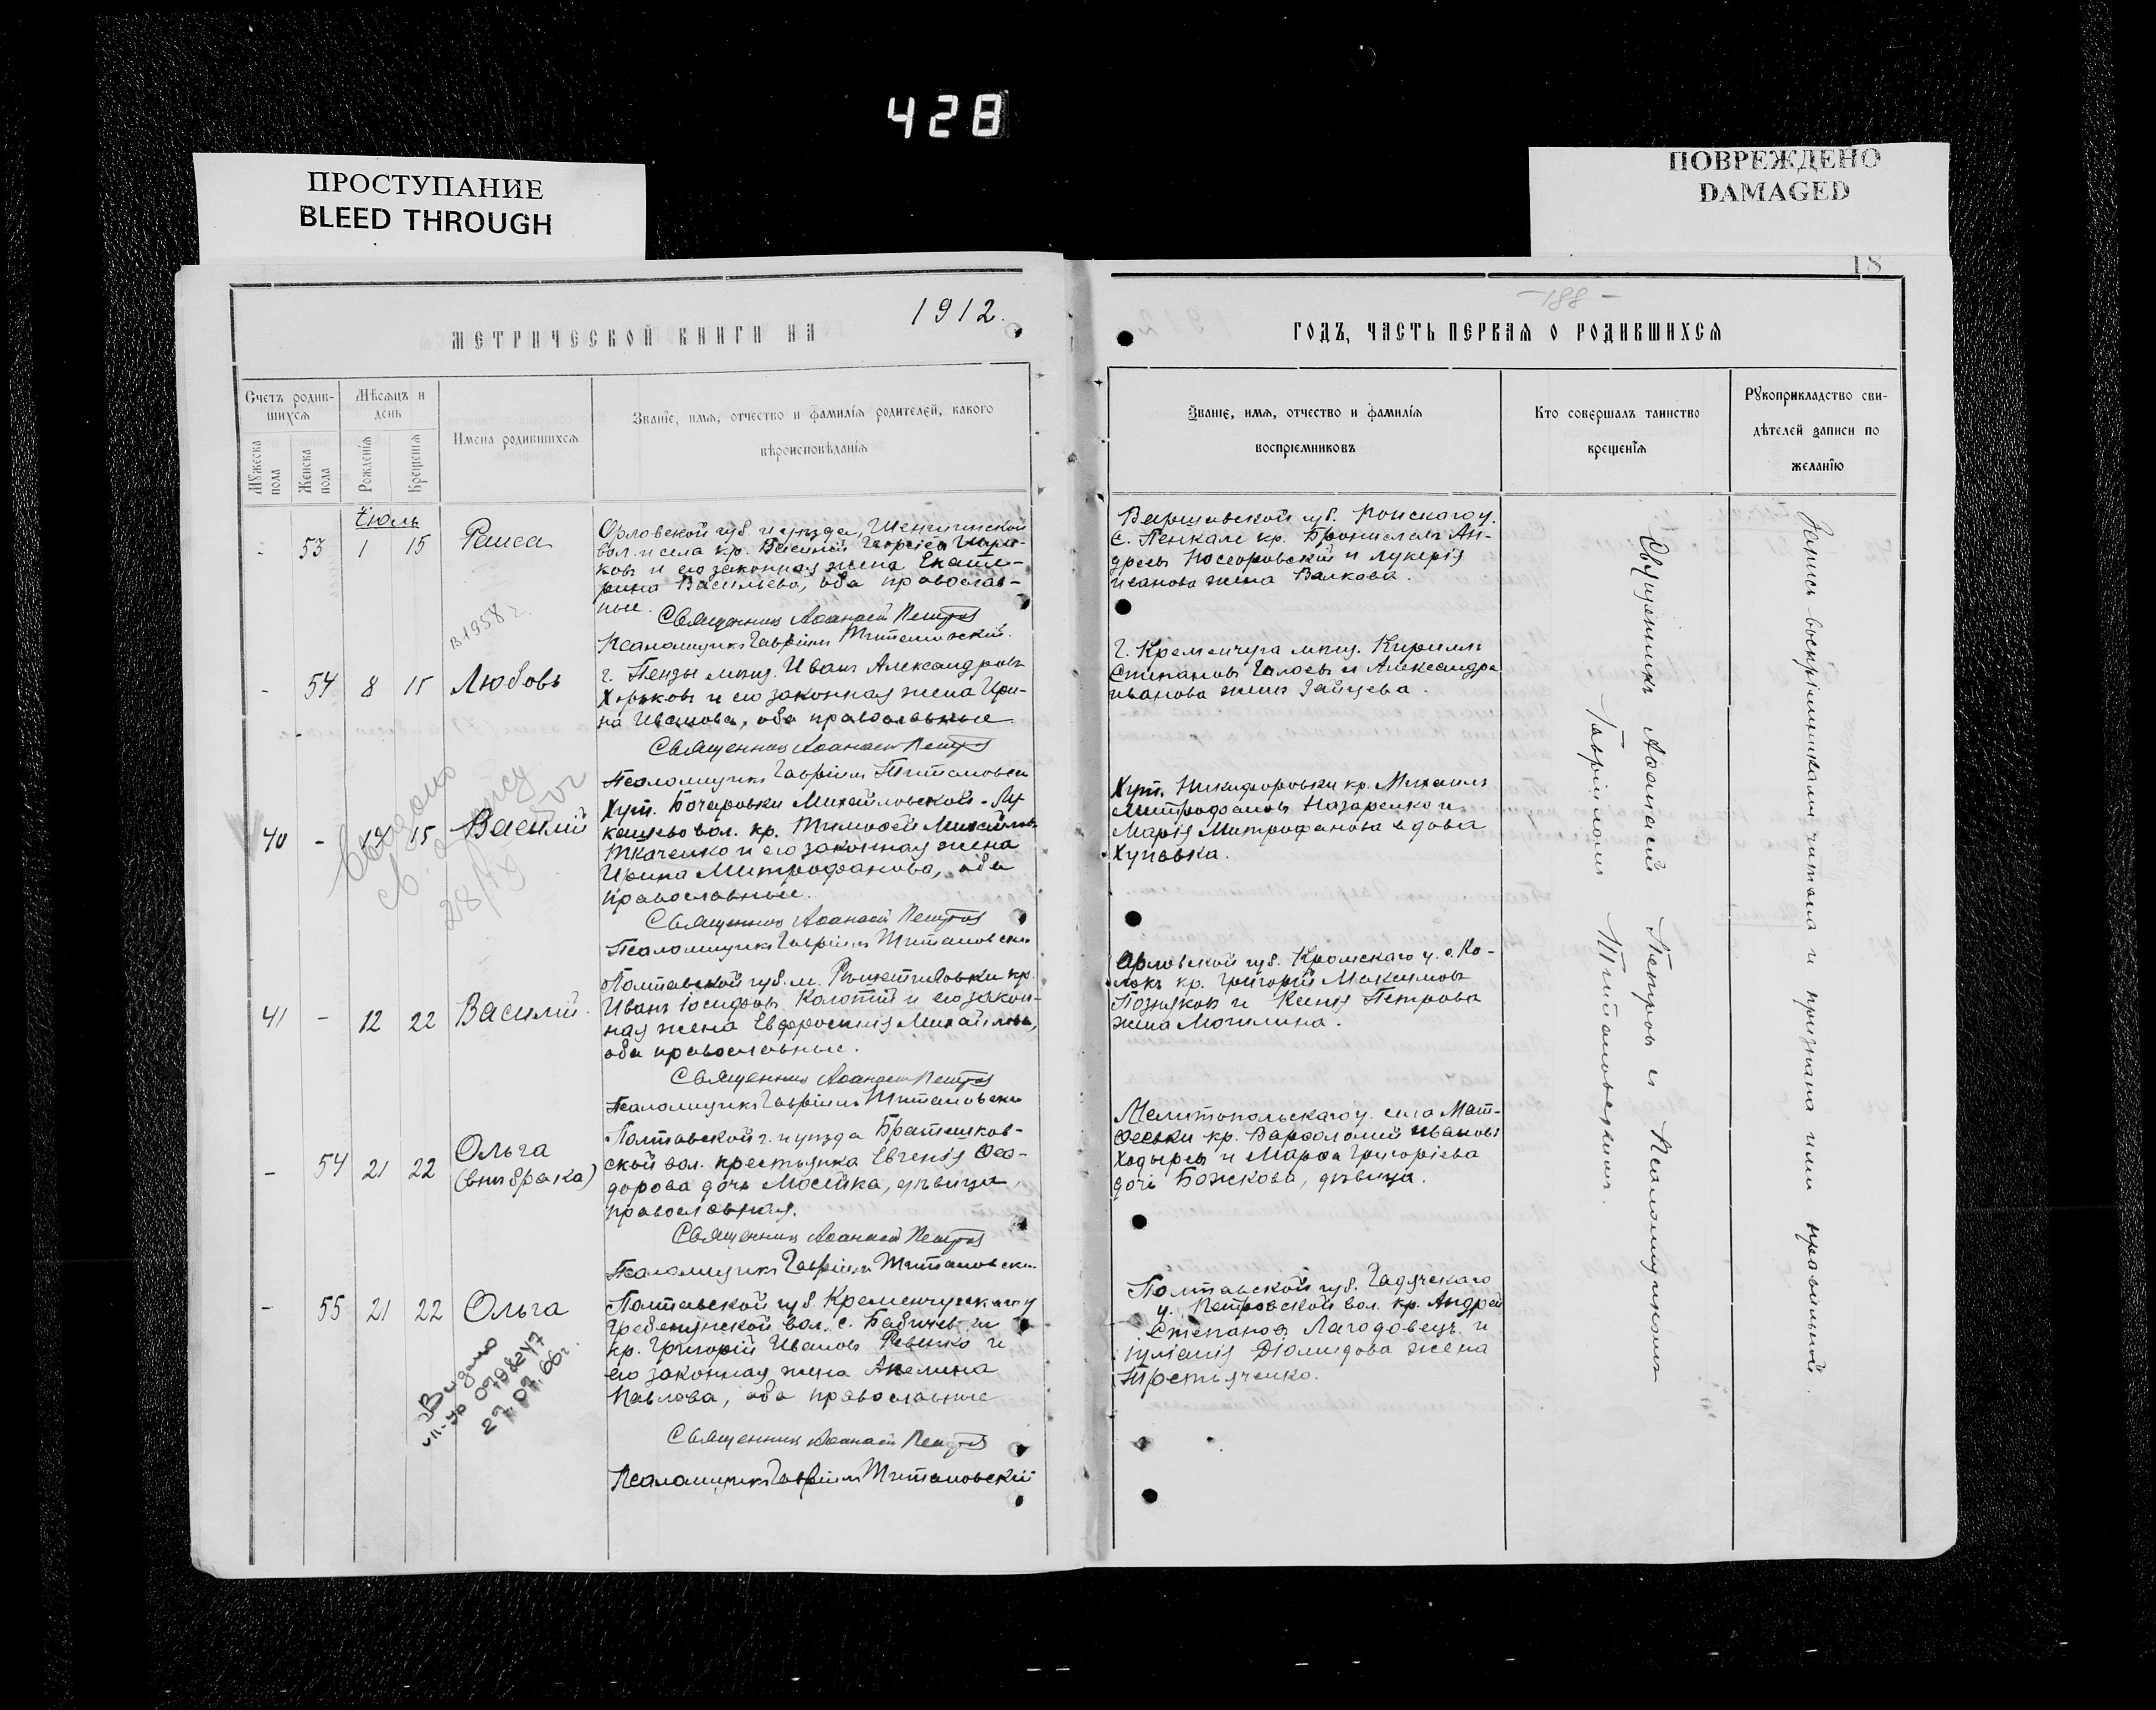 428
ПРОСТУПАНИЕ
BLEED THROUGH
ПОВРЕЖДЕНО
DAMAGED
18
-188-
1912.
МЕТРИЧЕСКОЙ КНИГИ НА
ГОДЪ, ЧАСТЬ ПЕРВАЯ О РОДИВШИХСЯ
Счетъ родив-
шихся
Мужеска пола
Женска пола
Мѣсяцъ и
день
Рожденія
Крещенія
Имена родившихся
Званіе, имя, отчество и фамилія родителей, какого
вѣроисповѣданія
Званіе, имя, отчество и фамилія
воспріемниковъ
Кто совершалъ таинство
крещенія
Рукоприкладство сви-
дѣтелей записи по
желанію
Іюль
- 53 1 15 Раиса
Орловской губ. и уѣзда,
вол. и села кр. Василій Георгіевъ
ковъ и его законная жена Екате-
рина Васильева, оба православ-
ные.
Священникъ Аѳанасій Петровъ
Псаломщикъ Гавріилъ Титановскій.
Варшавской губ.
с. кр. Брониславъ Ан-
дреевъ и Лукерія
Иванова жена Валкова.
в 1958 г.
- 54 8 15 Любовь
г. Пензы мѣщ. Иванъ Александровъ
и его законная жена Ири-
на Иванова, оба православные.
Священникъ Аѳанасій Петровъ
Псаломщикъ Гавріилъ Титановскій
г. Кременчуга мѣщ. Кириллъ
Степановъ и Александра
Иванова жена Зайцева.
40 - 15 Василій
Хут. Бочаровки Михайловской-Лу-
кашево вол. кр. Тимоѳей Михайловъ
Ткаченко и его законная жена
Ирина Митрофанова, оба
православные.
Священникъ Аѳанасій Петровъ
Псаломщикъ Гавріилъ Титановскій
Хут. Никифоровки кр. Михаилъ
Митрофановъ Назаренко и
Марія Митрофанова вдова
Хупавка.
41 - 12 22 Василій.
Полтавской губ. м. Рѣшетиловки кр.
Иванъ Іосифовъ Колотій и его закон-
ная жена Евфросинія Михайлова,
оба православные.
Священникъ Аѳанасій Петровъ
Псаломщикъ Гавріилъ Титановскій
Орловской губ. Кромскаго у. с. Ко-
локъ кр. Григорій Максимовъ
Позняковъ и Ксенія Петрова
жена Могилина.
- 54 21 22 Ольга
(внѣ брака)
Полтавской г. и уѣзда Братешков-
ской вол. крестьянка Евгенія Ѳео-
дорова дочь Мосейка, дѣвица,
православная.
Священникъ Аѳанасій Петровъ
Псаломщикъ Гавріилъ Титановскій
Мелитопольскаго у. села Мат-
ѳеевки кр. Варѳоломей Ивановъ
Ходыревъ и Марѳа Григорьева
дочь Божкова, дѣвица.
- 55 21 22 Ольга
Полтавской губ. Кременчугскаго у
вол. с.
кр. Григорій Ивановъ Ревенко и
его законная жена Акелина
Павлова, оба православные
Священникъ Аѳанасій Петровъ
Псаломщикъ Гавріилъ Титановскій
Полтавской губ. Гадячскаго
у. Петровской вол. кр. Андрей
Степановъ Лагодовецъ и
Іуліанія Діомидова жена
Третьяченко.
Видано
27.07.66г.
Священникъ Аѳанасій Петровъ и Псаломщикомъ
Гавріиломъ Титановскимъ.
Запись воспріемниками читана и признана ими правильной.